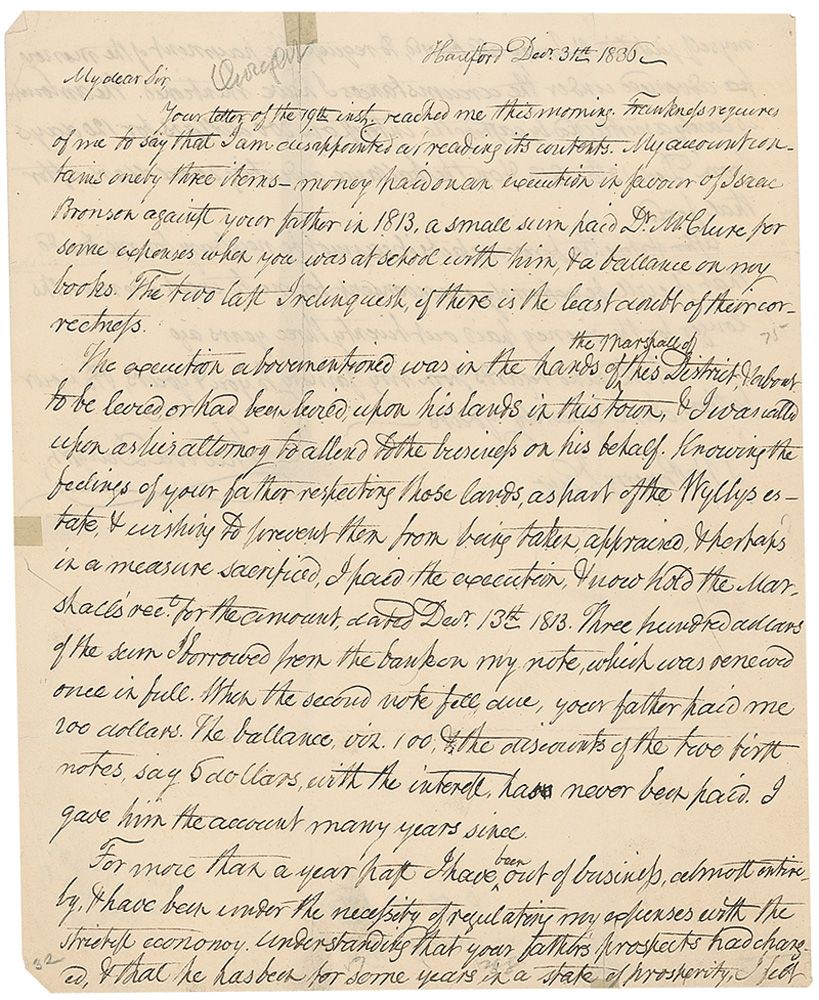 Hartford Decr. 31th 1836
My dear Sir
Dwight
Your letter of the 19th inst. reached me this morning. Frankness requires
of me to say that I am disappointed at reading its contents. My account con-
tains only three items - money paid on an execution in favour of Isaac
Bronson against your father in 1813, a small sum paid Dr. McClure for
some expenses when you was at school with him, & a ballance on my
books. The two last I relinquish, if there is the least doubt of their cor-
rectness.
75
The execution abovementioned was in the hands of the Marshall of this District, & about
to be levied or had been levied, upon his lands in this town, & I was called
upon as his attorney to attend to the business on his behalf. Knowing the
feelings of your father respecting those lands, as part of the Wyllys es-
tate, & wishing to prevent them from being taken, appraised, & perhaps
in a measure sacrificed, I paid the execution, & now hold the Mar-
shall's rect. for the amount, dated Decr. 13th 1813. Three hundred dollars
of the sum I borrowed from the bank on my note, which was renewed
once in full. When the second note fell due, your father paid me
200 dollars. The ballance, viz. 100, & the discounts of the two first
notes, say 5 dollars, with the interest, has never been paid. I
gave him the account many years since.
For more than a year past I have been out of business, almost entire-
ly, & have been under the necessity of regulating my expenses with the
strictest economy. Understanding that your father's prospects had chang-
ed, & that he has been for some years in a state of prosperity, I felt
32